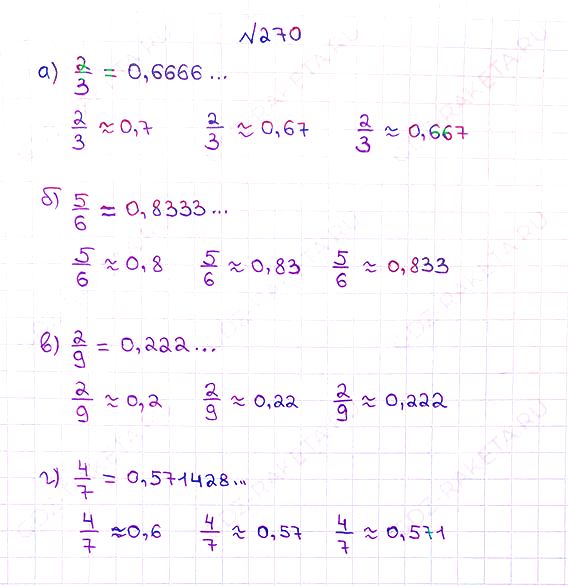 №270
а) 2/3 = 0,6666...
2/3 ≈ 0,7 2/3 ≈ 0,67 2/3 ≈ 0,667
б) 5/6 = 0,8333...
5/6 ≈ 0,8 5/6 ≈ 0,83 5/6 ≈ 0,833
в) 2/9 = 0,222...
2/9 ≈ 0,2 2/9 ≈ 0,22 2/9 ≈ 0,222
г) 4/7 = 0,571428...
4/7 ≈ 0,6 4/7 ≈ 0,57 4/7 ≈ 0,571
GDZ-RAKETA.RU